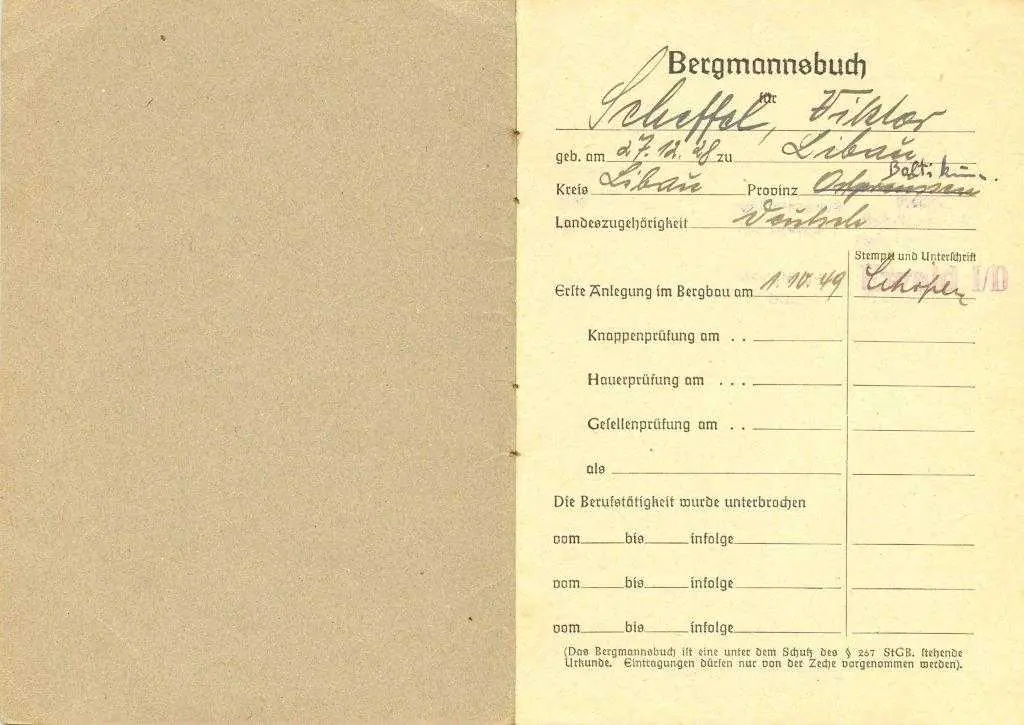 Bergmannsbuch
für
Scheffel, Viktor
geb. am 27.12.28 zu Libau
Baltikum
Kreis Libau Provinz Ostpreussen
Landeszugehörigkeit Deutsch
Stempel und Unterschrift
Erste Anlegung im Bergbau am 1.10.49
Knappenprüfung am . .
Hauerprüfung am . . .
Gesellenprüfung am . .
als
Die Berufstätigkeit wurde unterbrochen
vom bis infolge
vom bis infolge
vom bis infolge
(Das Bergmannsbuch ist eine unter dem Schutz des § 267 StGB. stehende
Urkunde. Eintragungen dürfen nur von der Zeche vorgenommen werden).